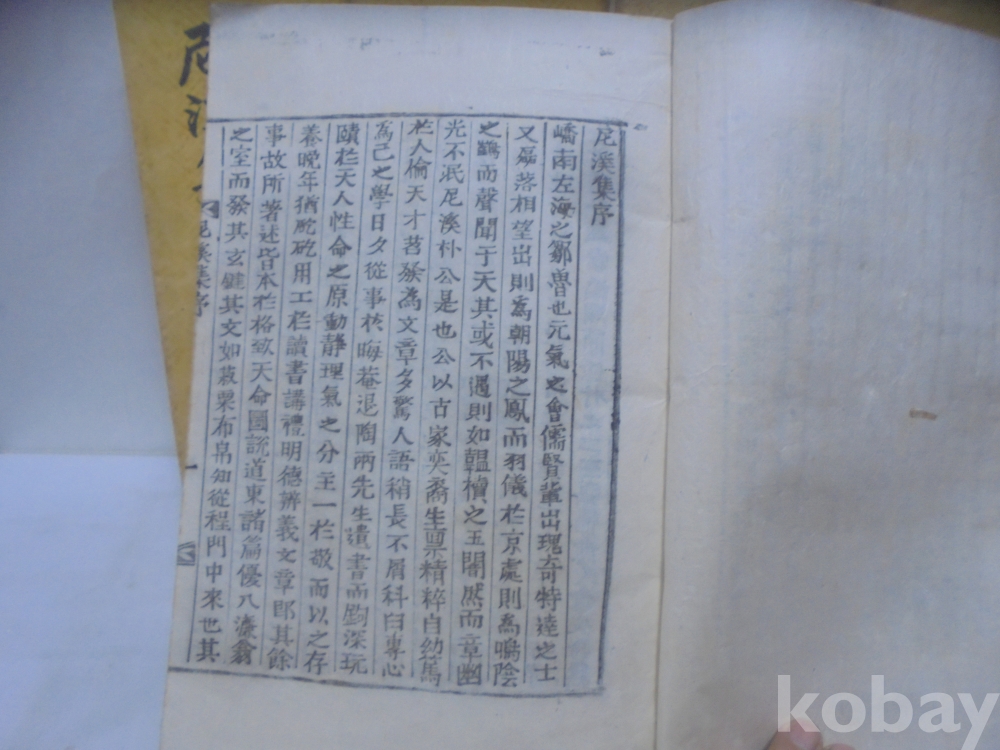 尼溪集序
嶠南左海之鄒魯也元氣之會儒賢輩出瑰奇特達之士
又磊落相望出則為朝陽之鳳而羽儀於京處則為鳴陰
之鶴而聲聞于天其或不遇則如韞櫝之玉闇然而章幽
光不泯尼溪朴公是也公以古家奕裔生稟精粹自幼篤
於人倫天才茗發為文章多驚人語稍長不屑科臼專心
為己之學日夕從事於晦菴退陶兩先生遺書而鉤深玩
賾於天人性命之原動靜理氣之分主一於敬而以之存
養晚年猶矻矻用工於讀書講禮明德辨義文章即其餘
事故所著述皆本於格致天命圖說道東諸篇優入濂翁
之室而發其玄鍵其文如菽粟布帛知從程門中來也其
尼溪集序
一
尼溪
kobay